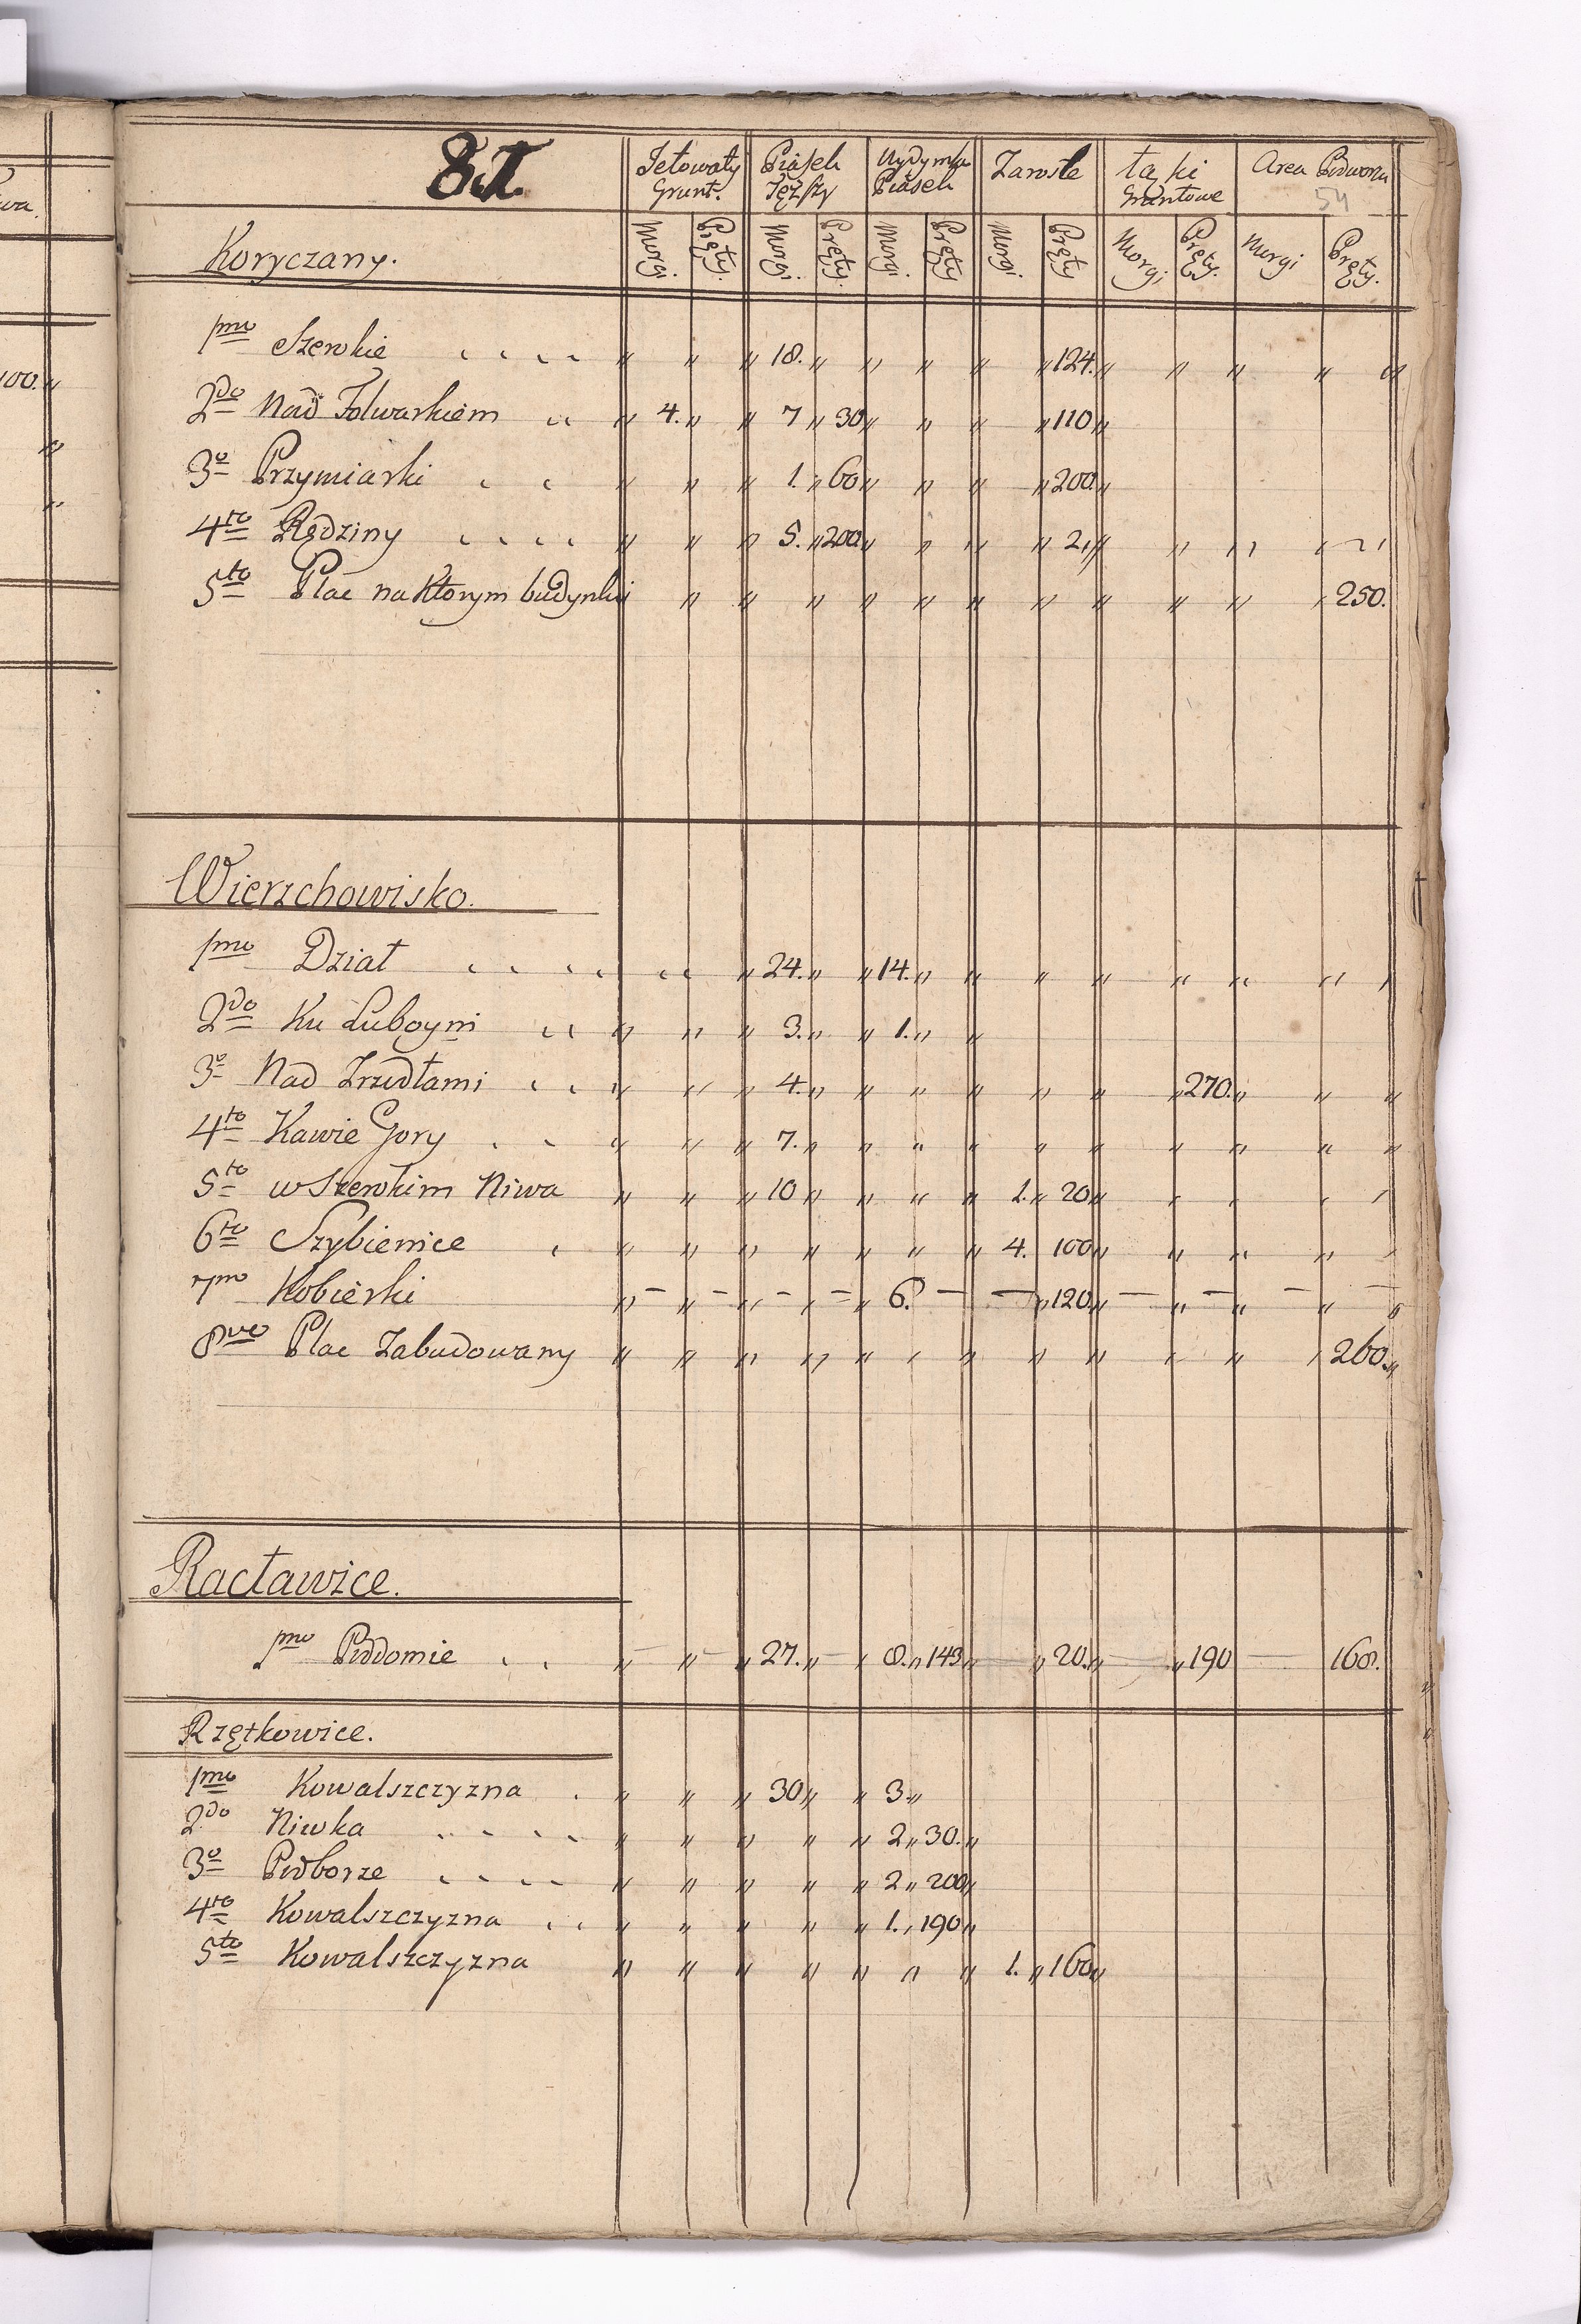 Jełowaty Piasek Wydymka Zarosłe Łąki Area Podworza
Grunt. Tęższy Piasek Gruntowe 54
Koryczany. Morgi. Pręty. Morgi. Pręty. Morgi. Pręty Morgi. Pręty Morgi. Pręty. Morgi Pręty.
1mo Szerokie . . . . " " " 18. " " " " " 124. " " " " "
2do Nad Folwarkiem . . " 4. " " 7 " 30 " " " " 110 "
3o Przymiarki . . " " " 1. " 60 " " " " 200 "
4to Rędziny . . . . " " " 5. " 200 " " " " 2 " " " " "
5to Plac na Ktorym budynki " " " " " " " " " " 250.
Wierzchowisko.
1mo Dział . . . . . . " 24. " " 14. " " " " " " " "
2do Ku Luboyni . . " " " 3. " " 1. " "
3o Nad Zrzodłami . . . " " 4. " " " " " " " 270. " " "
4to Kawie Gory . . . " " 7. " " " " " " " " " "
5to w Szerokim Niwa " " " 10 " " " " 1. " 20 " " " "
6to Szybienice . " " " " " " " 4. 100 " " " " "
7mo Kobierki " – " – " – " – " 6. – – " 120 " – " – " – " – "
8vo Plac Zabudowany " " " " " " " " " " " " 260. "
Racławice.
1mo Poddomie . . " " " 27. " " 8. " 143 " " 20. " " 190 168.
Rzętkowice.
1mo Kowalszczyzna . " " " 30 " " 3. "
2do Niwka . . . . " " " " " 2 " 30. "
3o Podborze . . . . " " " " " 2 " 200 "
4to Kowalszczyzna . . " " " " " 1. " 190 "
5to Kowalszczyzna " " " " " " " 1. " 160 "